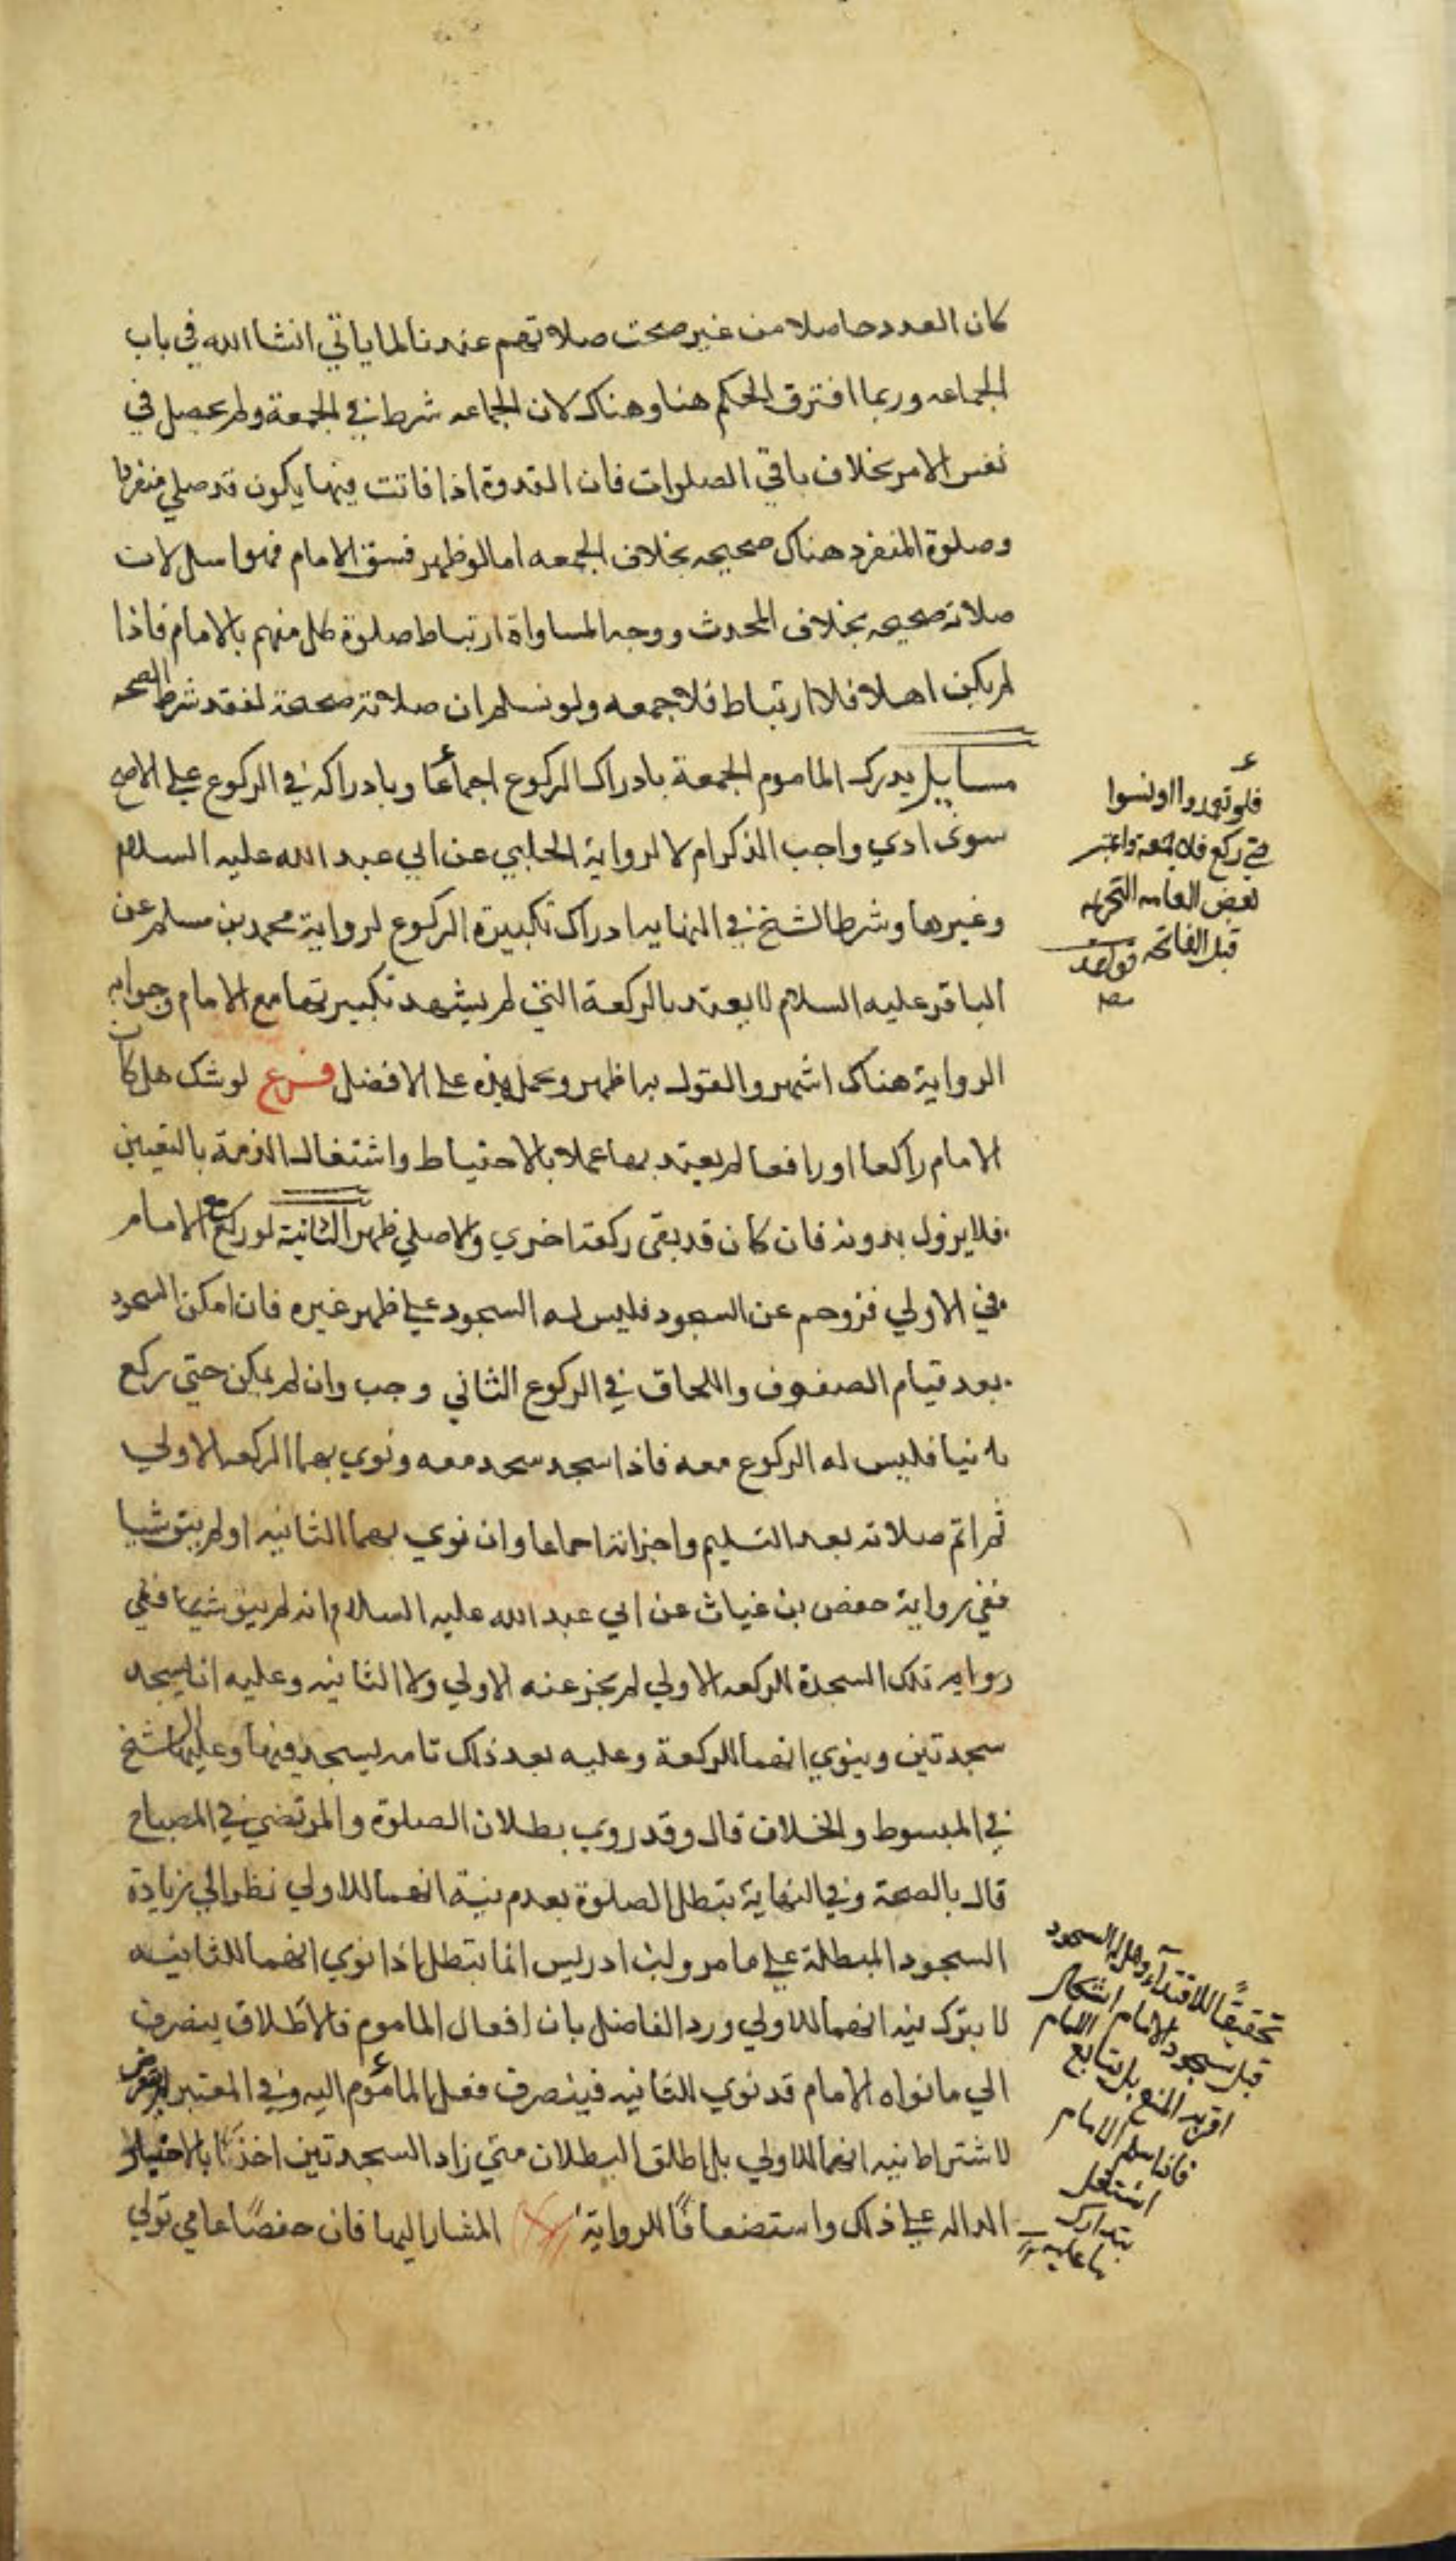 كان العدد حاصلا من غير صحت صلاتهم عندنا لما ياتي انشا الله في باب
الجماعه وربما افترق الحكم هنا وهناك لان الجماعه شرط في الجمعة ولم يحصل في
نفس الامر بخلاف باقي الصلوات فان القدوة اذا فاتت فيها يكون قد صلي منفردا
وصلوة المنفرد هناك صحيحه بخلاف الجمعه اما لو ظهر فسق الامام فهو اسهل لان
صلاته صحيحه بخلاف المحدث ووجه المساواة ارتباط صلوة كل منهم بالامام فاذا
لم يكن اهلا فلا ارتباط فلا جمعه ولو نسلم ان صلاته صحيحة لفقد شرط الصحه
مسايل يدرك الماموم الجمعة بادراك الركوع اجماعا وبادراكه في الركوع علي الاصح
سوى ادي واجب الذكر ام لا لرواية الحلبي عن ابي عبد الله عليه السلام
وغيرها وشرط الشيخ في النهايه ادراك تكبيرة الركوع لرواية محمد بن مسلم عن
الباقر عليه السلام لا يعتد بالركعة التي لم يشهد تكبيرتها مع الامام وجوابه
الرواية هناك اشهر والقول بها ظهر ويحمل هذه علي الافضل فرع لو شك هل كان
الامام راكعا او رافعا لم يعتد بها عملا بالاحتياط واشتغال الذمة باليقين
فلا يزول بدونه فان كان قد بقى ركعة اخري والا صلي ظهرا الثانية لو ركع مع الامام
في الاولي فزوحم عن السجود فليس له السجود علي ظهر غيره فان امكن السجود
بعد قيام الصفوف واللحاق في الركوع الثاني وجب وان لم يمكن حتي ركع
ثانيا فليس له الركوع معه فاذا سجد سجد معه ونوي بهما الركعه الاولي
ثم اتم صلاته بعد التسليم واجزاته اجماعا وان نوي بهما الثانيه او لم ينو شيا
ففي رواية حفص بن غياث عن ابي عبد الله عليه السلام انه لم ينو شيئا ففي
روايه تلك السجدة للركعه الاولي لم يجز عنه الاولي ولا الثانيه وعليه ان يسجد
سجدتين وينوي انهما للركعة وعليه بعد ذلك تامه يسجد فيها وعليها الشيخ
في المبسوط والخلاف قال وقد روي بطلان الصلوة والمرتضي في المصباح
قال بالصحة وفي النهاية يبطل الصلوة بعدم نية انهما للاولي نظرا الي زيادة
السجود المبطلة علي ما مر ولابن ادريس انما يبطل اذا نوي انهما للثانيه
لا بترك نيه انهما للاولي ورد الفاضل بان افعال الماموم فالاطلاق ينصرف
الي ما نواه الامام قد نوي الثانيه فينصرف فعل الماموم اليه وفي المعتبر لم يعرض
لاشتراط نيه انهما للاولي بل اطلق البطلان متي زاد السجدتين اخذا بالاخبار
الداله علي ذلك واستضعافا للرواية المشار اليها فان حفصا عامي تولي
فلو تعمدوا او نسوا
حتي ركع فلا جمعة واعتبر
بعض العامه التحريمه
قبل الفاتحه قواعد
تحقيقا للاقتداء وهل له السجود
قبل سجود الامام اشكال
اقربه المنع بل يتابع الامام
فاذا سلم الامام
اشتغل
بتدارك
ما عليه